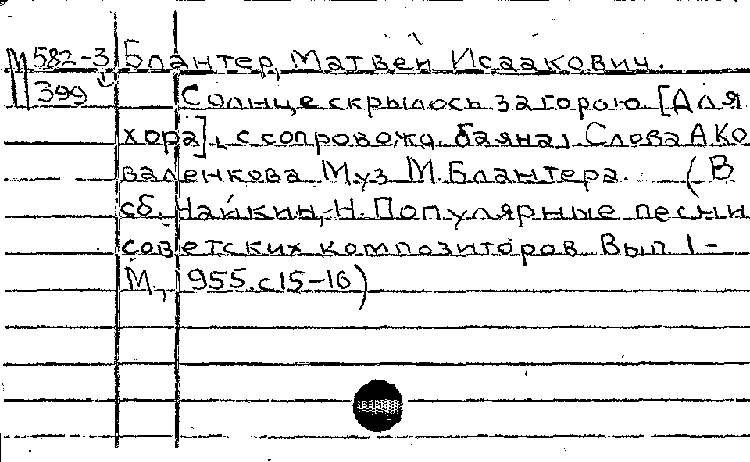 М 582-3 Блантер, Матвей Исаакович.
399 Солнце скрылось за горою [Для
хора], с сопровожд. баяна, Слова А Ко
валенкова Муз М. Блантера. (В
сб. Чайкин, Н. Популярные песни
советских композиторов Вып 1-
М, 1955. с 15-16)